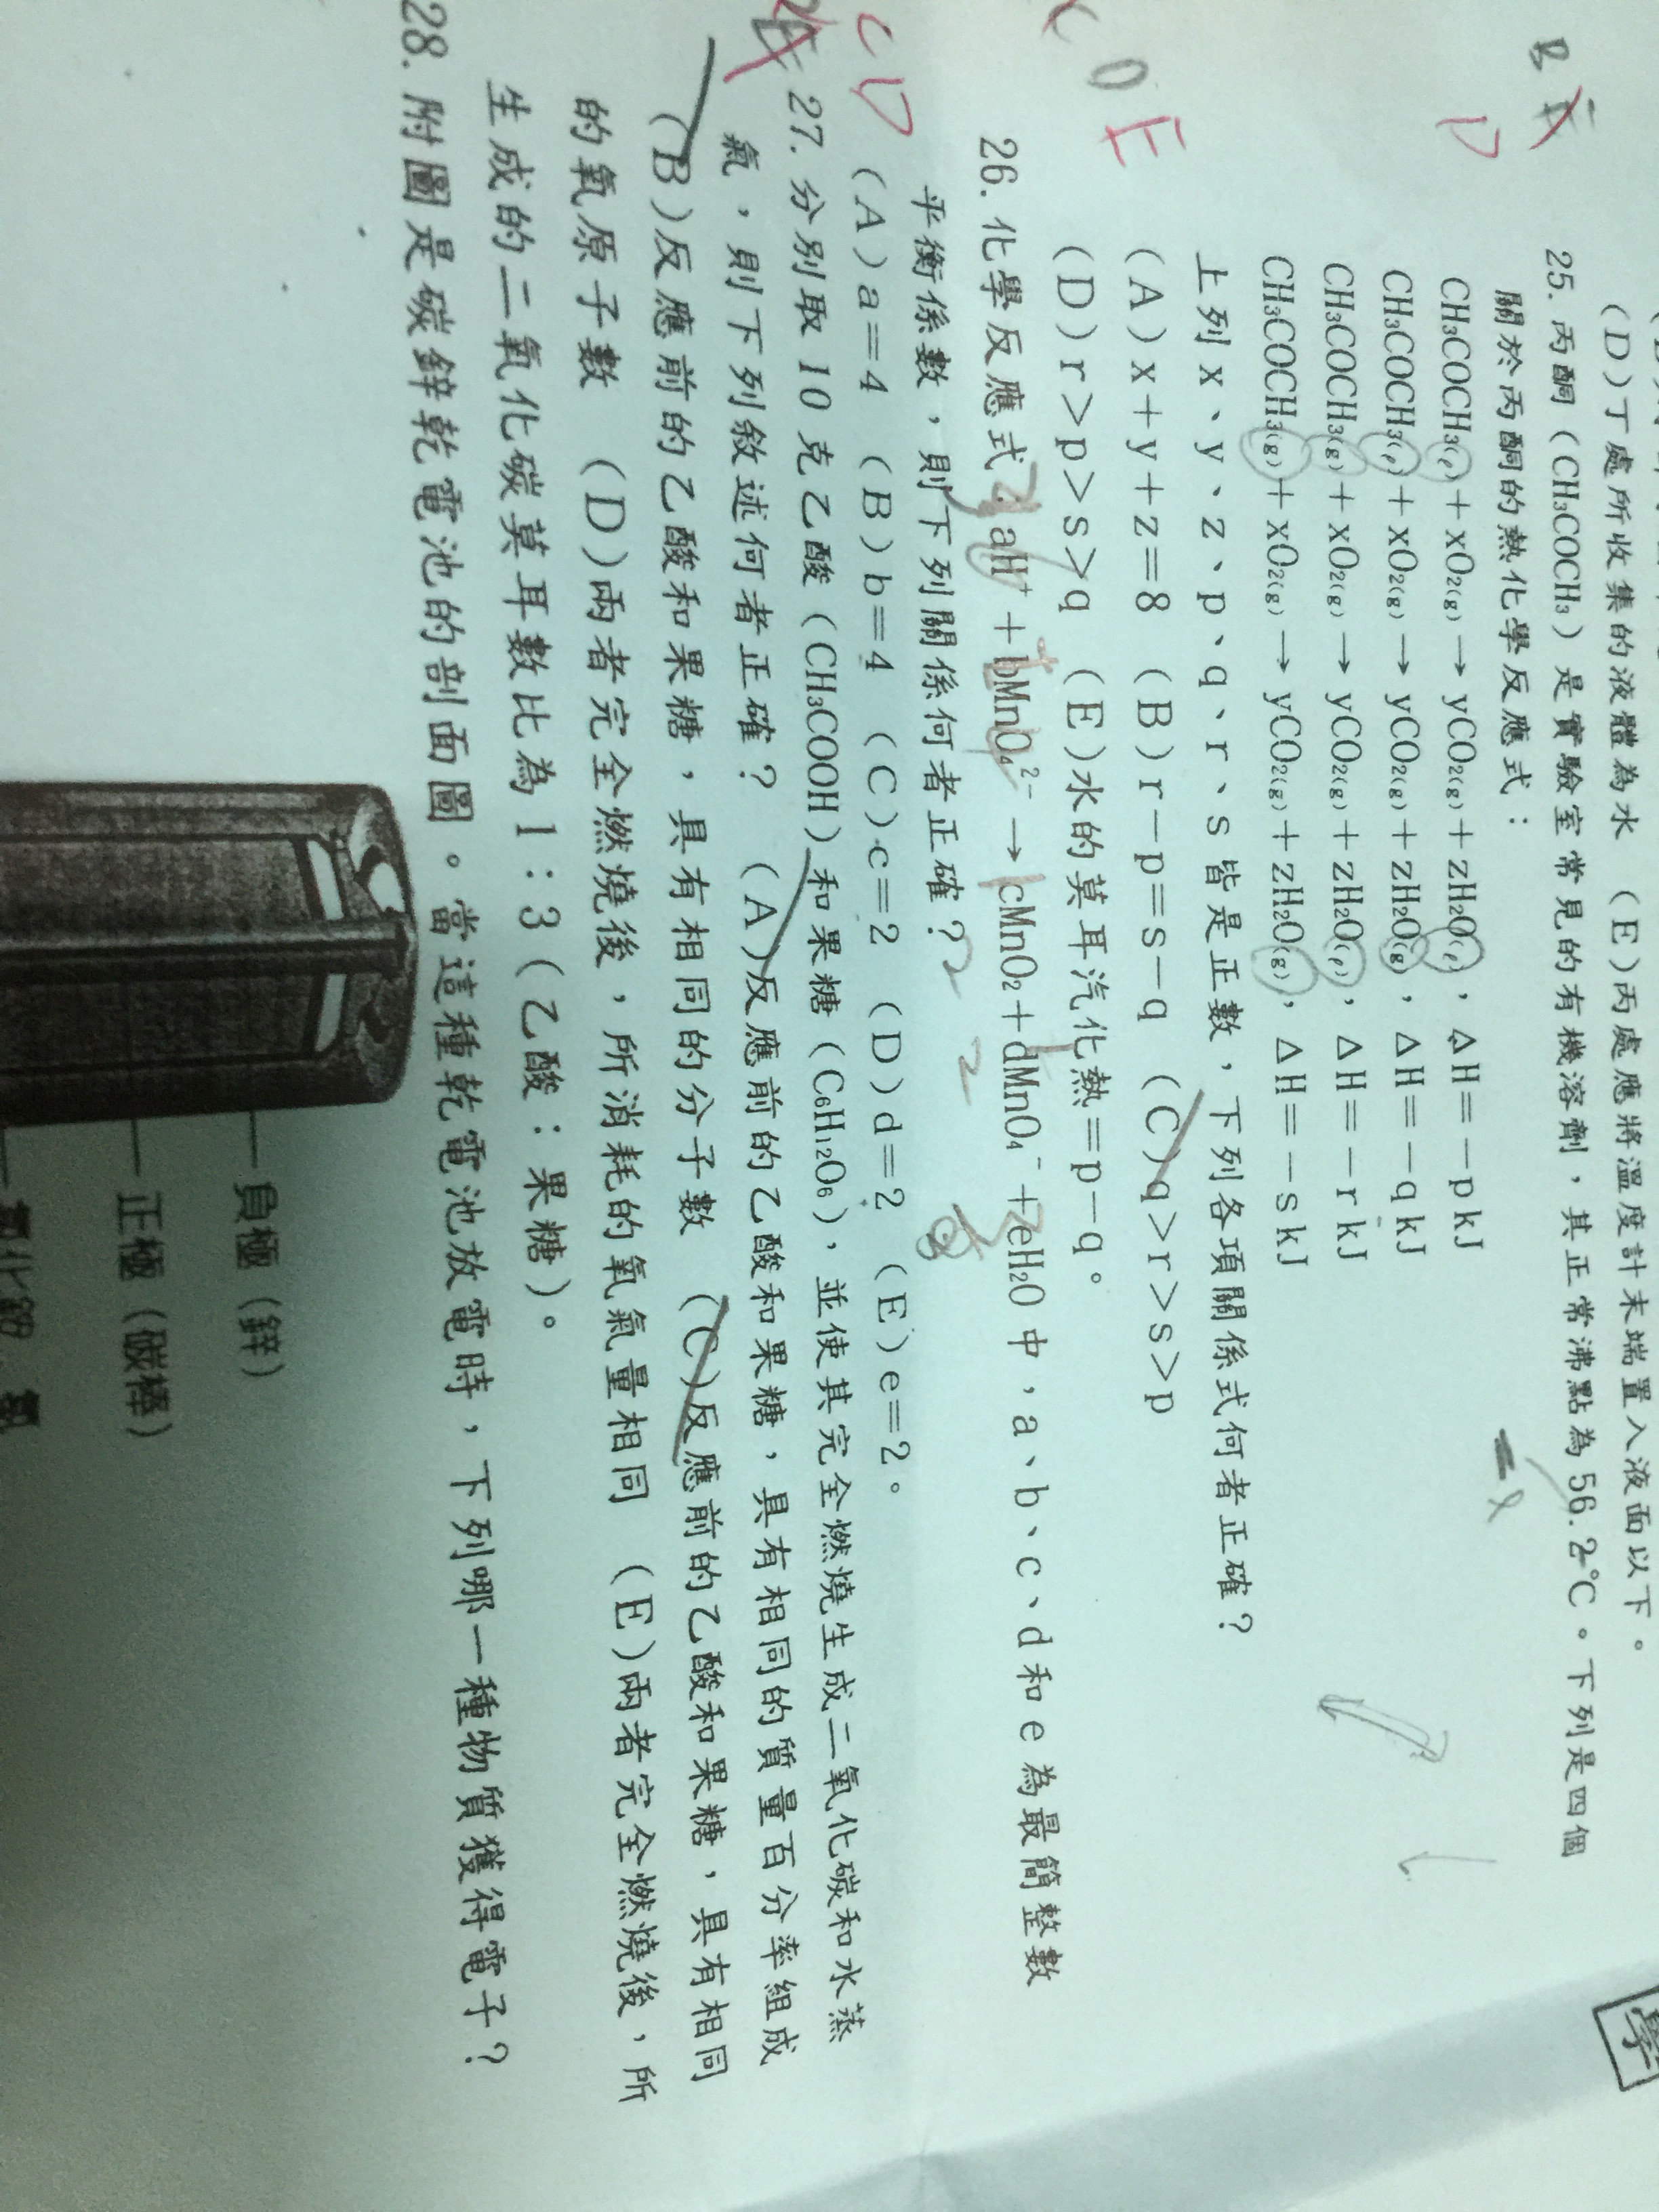 (D)丁處所收集的液體為水 (E)丙處應將溫度計末端置入液面以下。
25. 丙酮（CH₃COCH₃）是實驗室常見的有機溶劑，其正常沸點為56.2℃。下列是四個
關於丙酮的熱化學反應式：
CH₃COCH₃(ℓ)＋xO₂(g)→yCO₂(g)＋zH₂O(ℓ)，ΔH＝－p kJ
CH₃COCH₃(ℓ)＋xO₂(g)→yCO₂(g)＋zH₂O(g)，ΔH＝－q kJ
CH₃COCH₃(g)＋xO₂(g)→yCO₂(g)＋zH₂O(ℓ)，ΔH＝－r kJ
CH₃COCH₃(g)＋xO₂(g)→yCO₂(g)＋zH₂O(g)，ΔH＝－s kJ
上列x、y、z、p、q、r、s皆是正數，下列各項關係式何者正確？
(A)x＋y＋z＝8 (B)r－p＝s－q (C)q＞r＞s＞p
(D)r＞p＞s＞q (E)水的莫耳汽化熱＝p－q。
26. 化學反應式：aH⁺＋bMnO₄²⁻→cMnO₂＋dMnO₄⁻＋eH₂O中，a、b、c、d和e為最簡整數
平衡係數，則下列關係何者正確？
(A)a＝4 (B)b＝4 (C)c＝2 (D)d＝2 (E)e＝2。
27. 分別取10克乙酸（CH₃COOH）和果糖（C₆H₁₂O₆），並使其完全燃燒生成二氧化碳和水蒸
氣，則下列敘述何者正確？ (A)反應前的乙酸和果糖，具有相同的質量百分率組成
(B)反應前的乙酸和果糖，具有相同的分子數 (C)反應前的乙酸和果糖，具有相同
的氧原子數 (D)兩者完全燃燒後，所消耗的氧氣量相同 (E)兩者完全燃燒後，所
生成的二氧化碳莫耳數比為1：3（乙酸：果糖）。
28. 附圖是碳鋅乾電池的剖面圖。當這種乾電池放電時，下列哪一種物質獲得電子？
負極（鋅）
正極（碳棒）
學
B
D
C D
E
C D